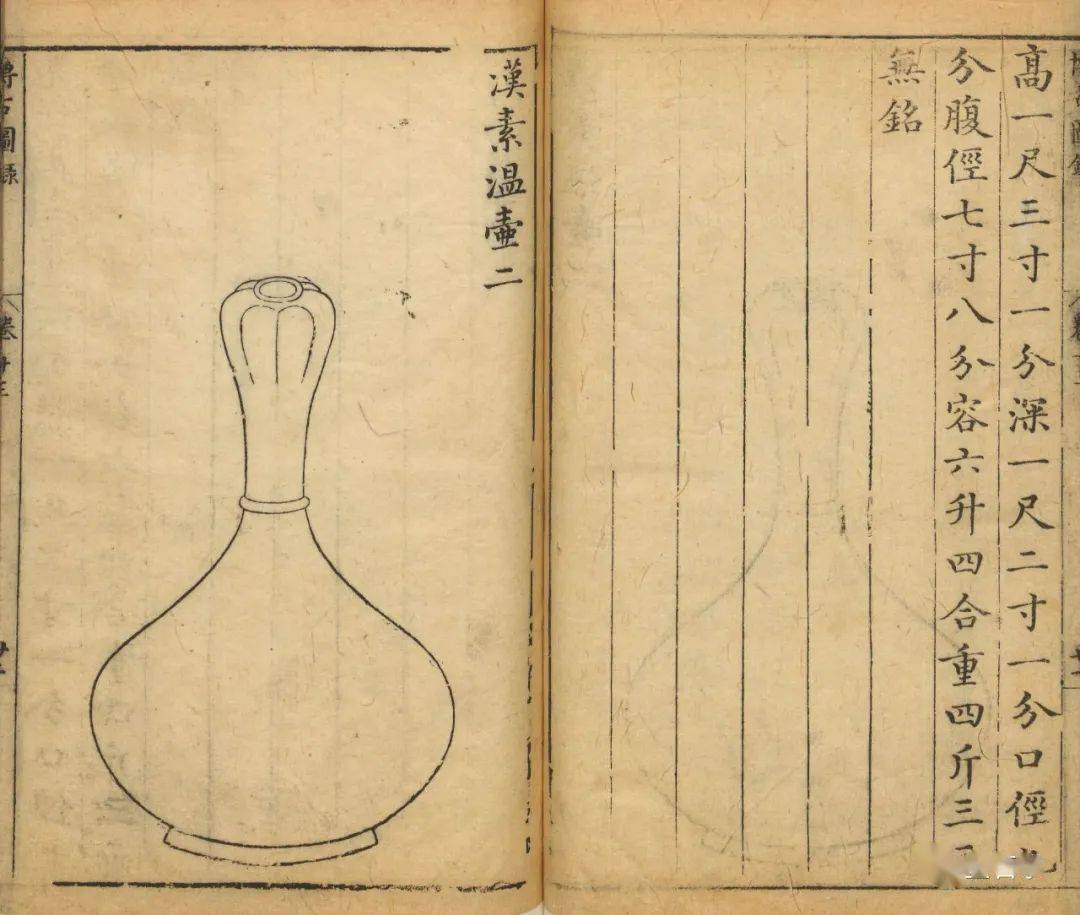 高一尺三寸一分深一尺二寸一分口徑九
分腹徑七寸八分容六升四合重四斤三
無銘
漢素溫壷二
博古圖錄
卷廿三